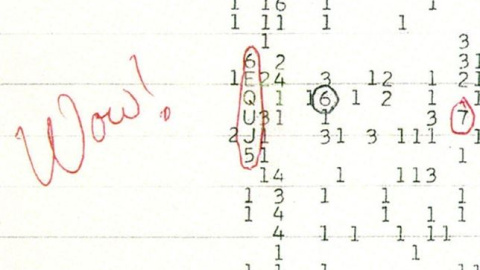 1 16 1 1
1 11 1 1
1 3
6 2 31
E24 3 12 1 21
1
Q 1 16 1 2 1 1
U31 1 3 7
2 J1 31 3 111 1
51 1
14 1 113
1 3 1 1 1
1 4 1 1 1
4 1 1 1 11
1 1
1 1 1
Wow!